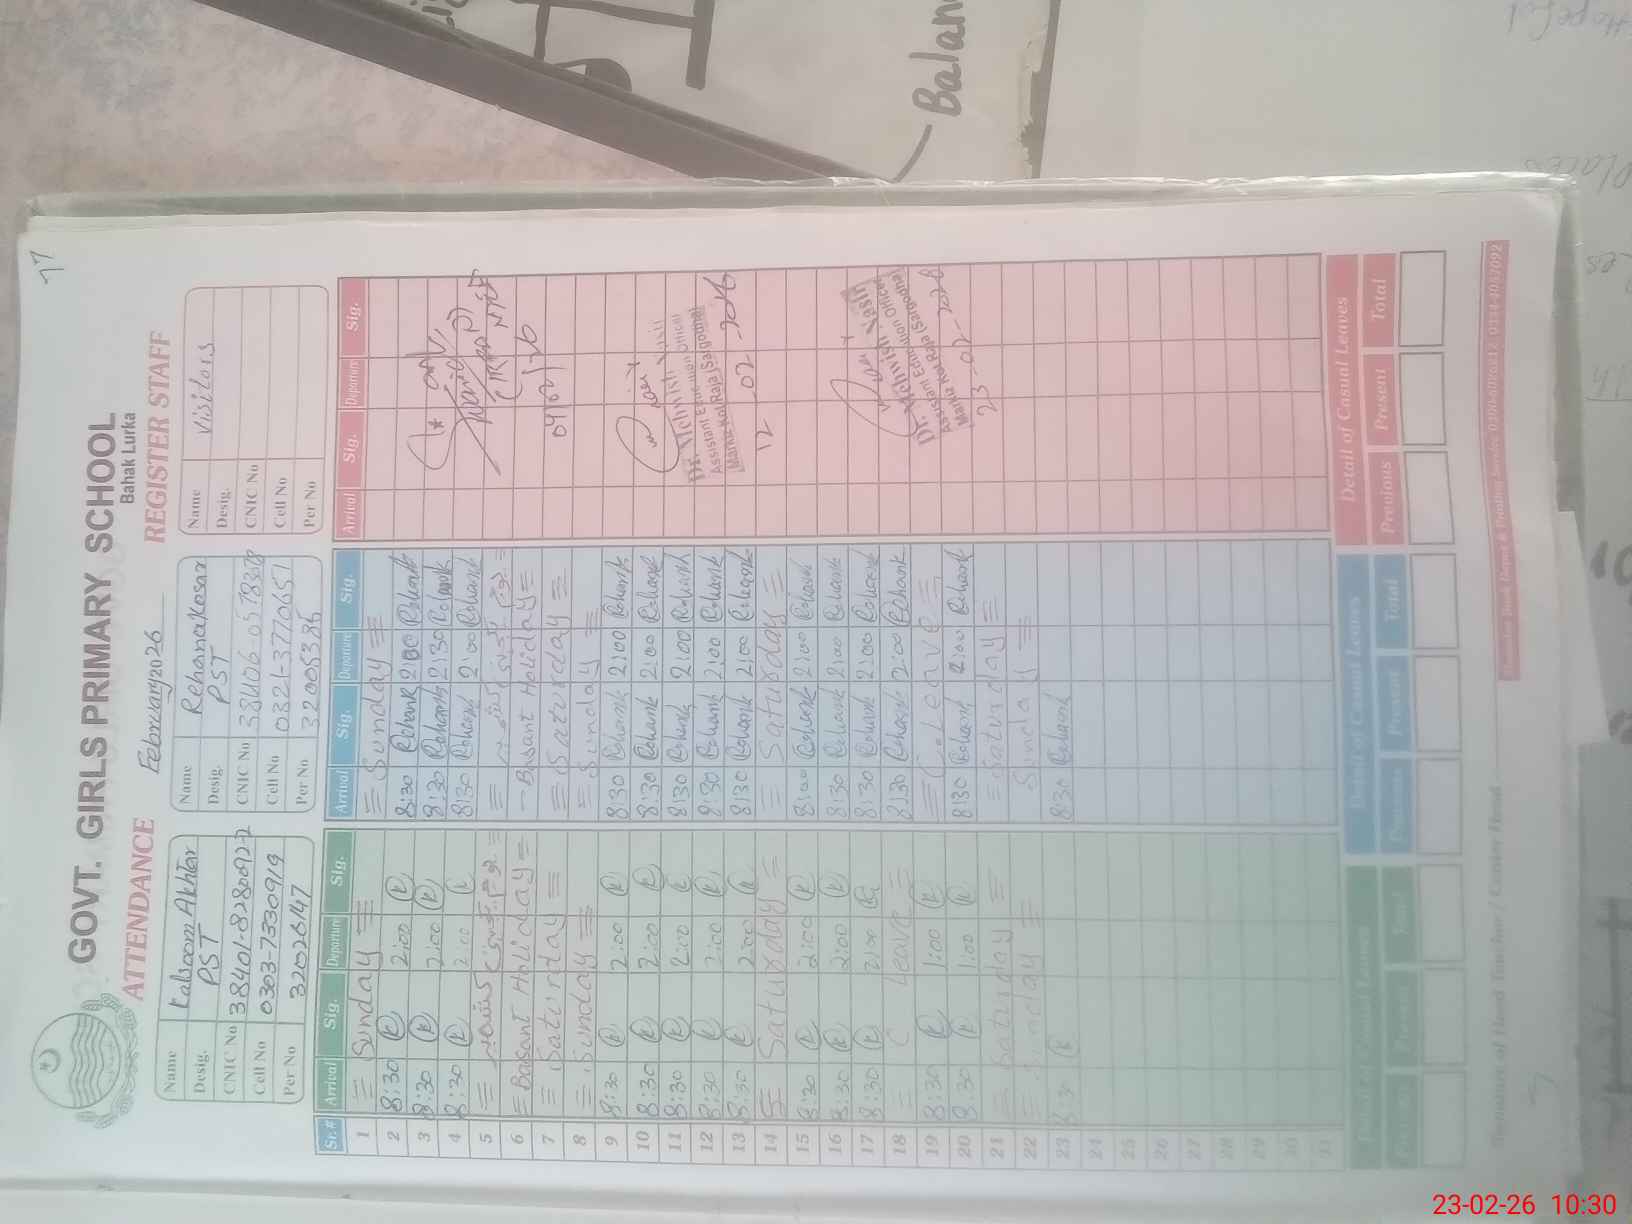 77
GOVT. GIRLS PRIMARY SCHOOL
Bahak Lurka
ATTENDANCE February2026 REGISTER STAFF
Name Kalsoom Akhtar
Desig. PST
CNIC No 38401-8280922-2
Cell No 0303-7330919
Per No 32026147
Name Rehana Kosar
Desig. PST
CNIC No
Cell No 0321-3770651
Per No 32005386
Name Visitors
Desig.
CNIC No
Cell No
Per No
Sr.# Arrival Sig. Departure Sig. Arrival Sig. Departure Sig. Arrival Sig. Departure Sig.
1 = Sunday = = Sunday =
2 8:30 K 2:00 K 8:30 Rehank 2:00 Rehank
3 8:30 K 2:00 K 8:30 Rehank 2:30 Rehank
4 8:30 K 2:00 K 8:30 Rehank 2:00 Rehank
5
6 = Basant Holiday = - Basant Holiday =
7 = Saturday = = Saturday =
8 = Sunday = = Sunday =
9 8:30 K 2:00 K 8:30 Rehank 2:00 Rehank
10 8:30 K 2:00 K 8:30 Rehank 2:00 Rehank
11 8:30 K 2:00 K 8:30 Rehank 2:00 Rehank
12 8:30 K 2:00 K 8:30 Rehank 2:00 Rehank
13 8:30 K 2:00 K 8:30 Rehank 2:00 Rehank
14 = Saturday = = Saturday =
15 8:30 K 2:00 K 8:00 Rehank 2:00 Rehank
16 8:30 K 2:00 K 8:30 Rehank 2:00 Rehank
17 8:30 K 2:00 K 8:30 Rehank 2:00 Rehank
18 = C Leave = 8:30 Rehank 2:00 Rehank
19 8:30 K 1:00 K = C Leave =
20 8:30 K 1:00 K 8:30 Rehank 2:00 Rehank
21 = Saturday = = Saturday =
22 = Sunday = Sunday =
23 8:30 K 8:30 Rehank
24
25
26
27
28
29
30
31
04/02/26
Dr. Mehvish Yasin
Assistant Education Officer
Markaz Kot Raja (Sargodha)
12-02-2026
Dr. Mehvish Yasin
Assistant Education Officer
Markaz Kot Raja (Sargodha)
23-02-2026
Detail of Casual Leaves Detail of Casual Leaves Detail of Casual Leaves
Previous Present Total Previous Present Total Previous Present Total
Signature of Head Teacher / Center Head
Balan
Hopeful
places
23-02-26 10:30